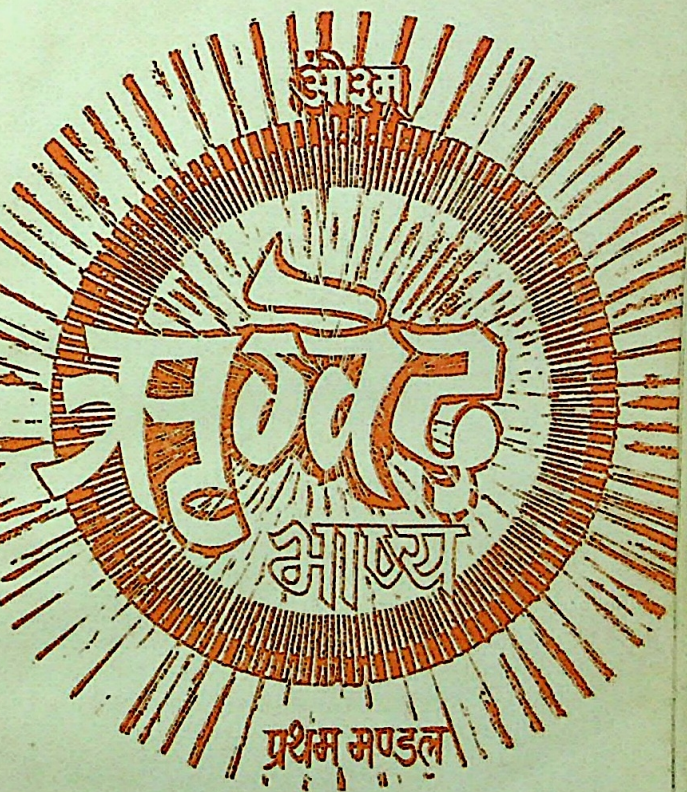 ओ३म्
ऋग्वेद
भाष्य
प्रथम मण्डल